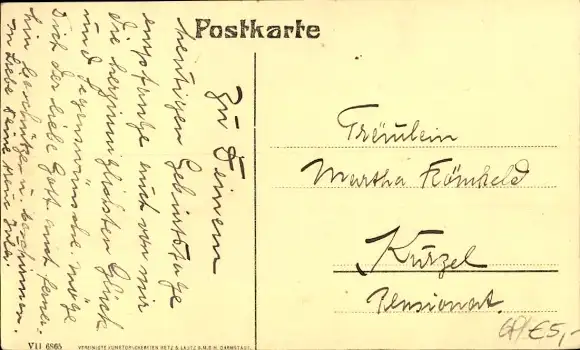 Postkarte
Zu Deinem
heutigen Geburtstage
empfange auch von mir
die herzinniglichsten Glück-
und Segenswünsche. Möge
Dich der liebe Gott auch ferner-
hin beschützen u. beschirmen.
In Liebe Deine
Fräulein
Martha Römheld
Kürzel
Pensionat.
€5,-
VU 6865
VEREINIGTE KUNSTDRUCKEREIEN METZ & LAUTZ G.M.B.H. DARMSTADT.